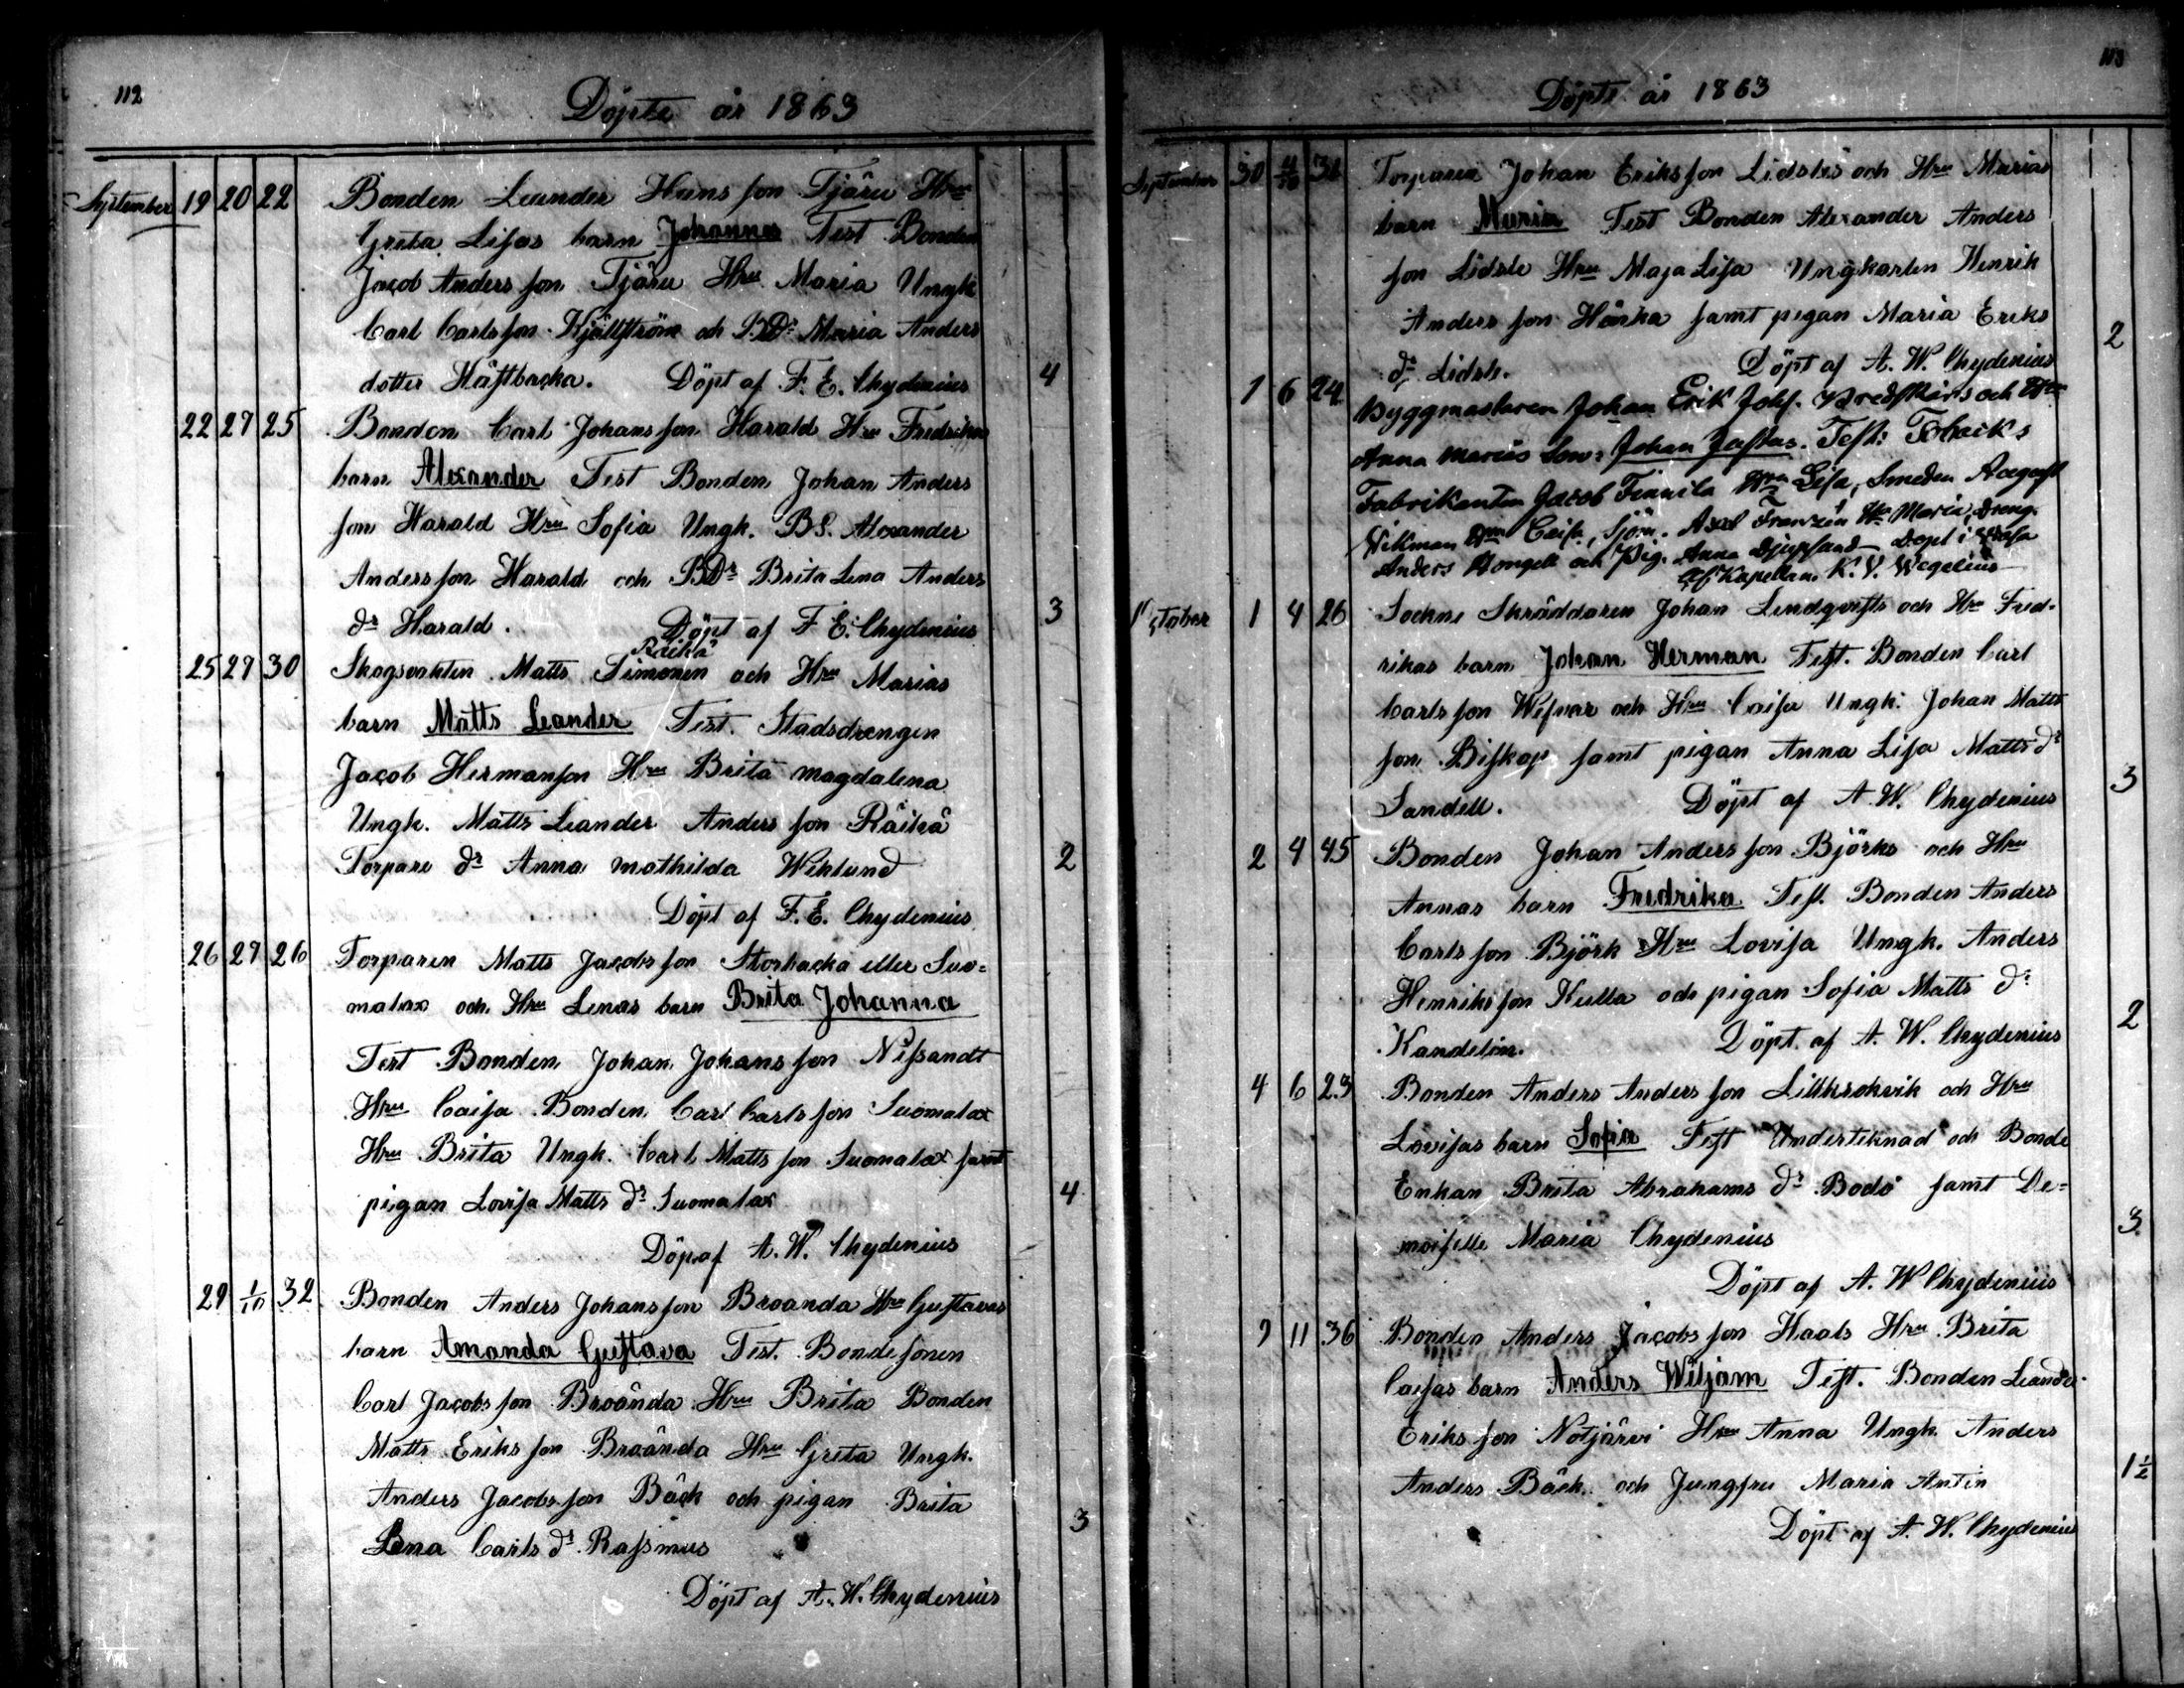 112
Döpte år 1863
September 19 20 22 Bonden Leander Hansson Tjäru Hru
Greta Lisas barn Johannes Test Bonden
Jacob Andersson Tjäru Hru Maria Ungk
Carl Carlsson Kjällström och BDr Maria Anders
dotter Häftbacka. Döpt af F. E. Chydenius 4
22 27 25 Bonden Carl Johansson Harald Hru Fredrikas
barn Alexander Test Bonden Johan Anders
son Harald Hru Sofia Ungk. B.S. Alexander
Andersson Harald och BDr Brita Lena Anders
dr Harald. Döpt af F E. Chydenius 3
Räikä
25 27 30 Skogsvakten Matts Simonen och Hru Marias
barn Matts Leander Test. Stadsdrengen
Jacob Hermanson Hru Brita Magdalena
Ungk. Matts Leander Andersson Räikä
Torpare dr Anna Mathilda Wiklund 2
Döpt af F. E. Chydenius
26 27 26 Torparen Matts Jacobsson Storbacka eller Suo-
malax och Hru Lenas barn Brita Johanna
Test Bonden Johan Johansson Nissandt
Hru Caisa Bonden Carl Carlsson Suomalax
Hru Brita Ungk. Carl Mattsson Suomalax samt
pigan Lovisa Matts dr Suomalax 4
Döp af A. W. Chydenius
29 1/10 32 Bonden Anders Johansson Broanda Hru Gustavas
barn Amanda Gustava Test. Bondesonen
Carl Jacobsson Broända Hru Brita Bonden
Matts Eriksson Broända Hru Greta Ungk.
Anders Jacobsson Bäck och pigan Brita
Lena Carls dr Rassmus 3
Döpt af A. W. Chydenius
113
Döpte år 1863
September 30 4/10 31 Torparen Johan Eriksson Lidstes och Hru Marias
barn Maria Test Bonden Alexander Anders
son Lidste Hru Maja Lisa Ungkarlen Henrik
Andersson Hänka samt pigan Maria Eriks
dr Lidste. Döpt af A. W. Chydenius 2
1 6 24 Byggmästaren Johan Erik Johs. Bredskärs och Hru
Anna Marias son: Johan Justus. Test: Tobaks
Fabrikanten Jacob Finnilä Hru Lisa, Smeden August
Wikman Hru Caisa, Sjöm. Axel Franzén Hr Maria, Dreng.
Anders Bongell och Pig. Anna Djupsund döpt i Wasa
af Kapellan. K. V. Wegelius
October 1 4 26 Sockne Skräddaren Johan Lindqvists och Hru Fred-
rikas barn Johan Herman Test. Bonden Carl
Carlsson Wisnar och Hru Caisa Ungk. Johan Matts
son Biskop samt pigan Anna Lisa Matts dr
Sandell. Döpt af A. W. Chydenius 3
2 4 45 Bonden Johan Andersson Björks och Hru
Annas barn Fredrika Test. Bonden Anders
Carlsson Björk Hru Lovisa Ungk. Anders
Henriksson Kulla och pigan Sofia Matts dr
Kandelin. Döpt af A. W. Chydenius 2
4 6 23 Bonden Anders Andersson Lillkrokvik och Hru
Lovisas barn Sofia Test Underteknad och Bonde
Enkan Brita Abrahams dr Bodö samt De-
moiselle Maria Chydenius 3
Döpt af A. W Chydenius
9 11 36 Bonden Anders Jacobsson Haals Hru Brita
Caisas barn Anders Wiljam Test. Bonden Leander
Eriksson Notjärvi Hru Anna Ungk. Anders
Anders Bäck och Jungfru Maria Antin 1 1/2
Döpt af A. W. Chydenius